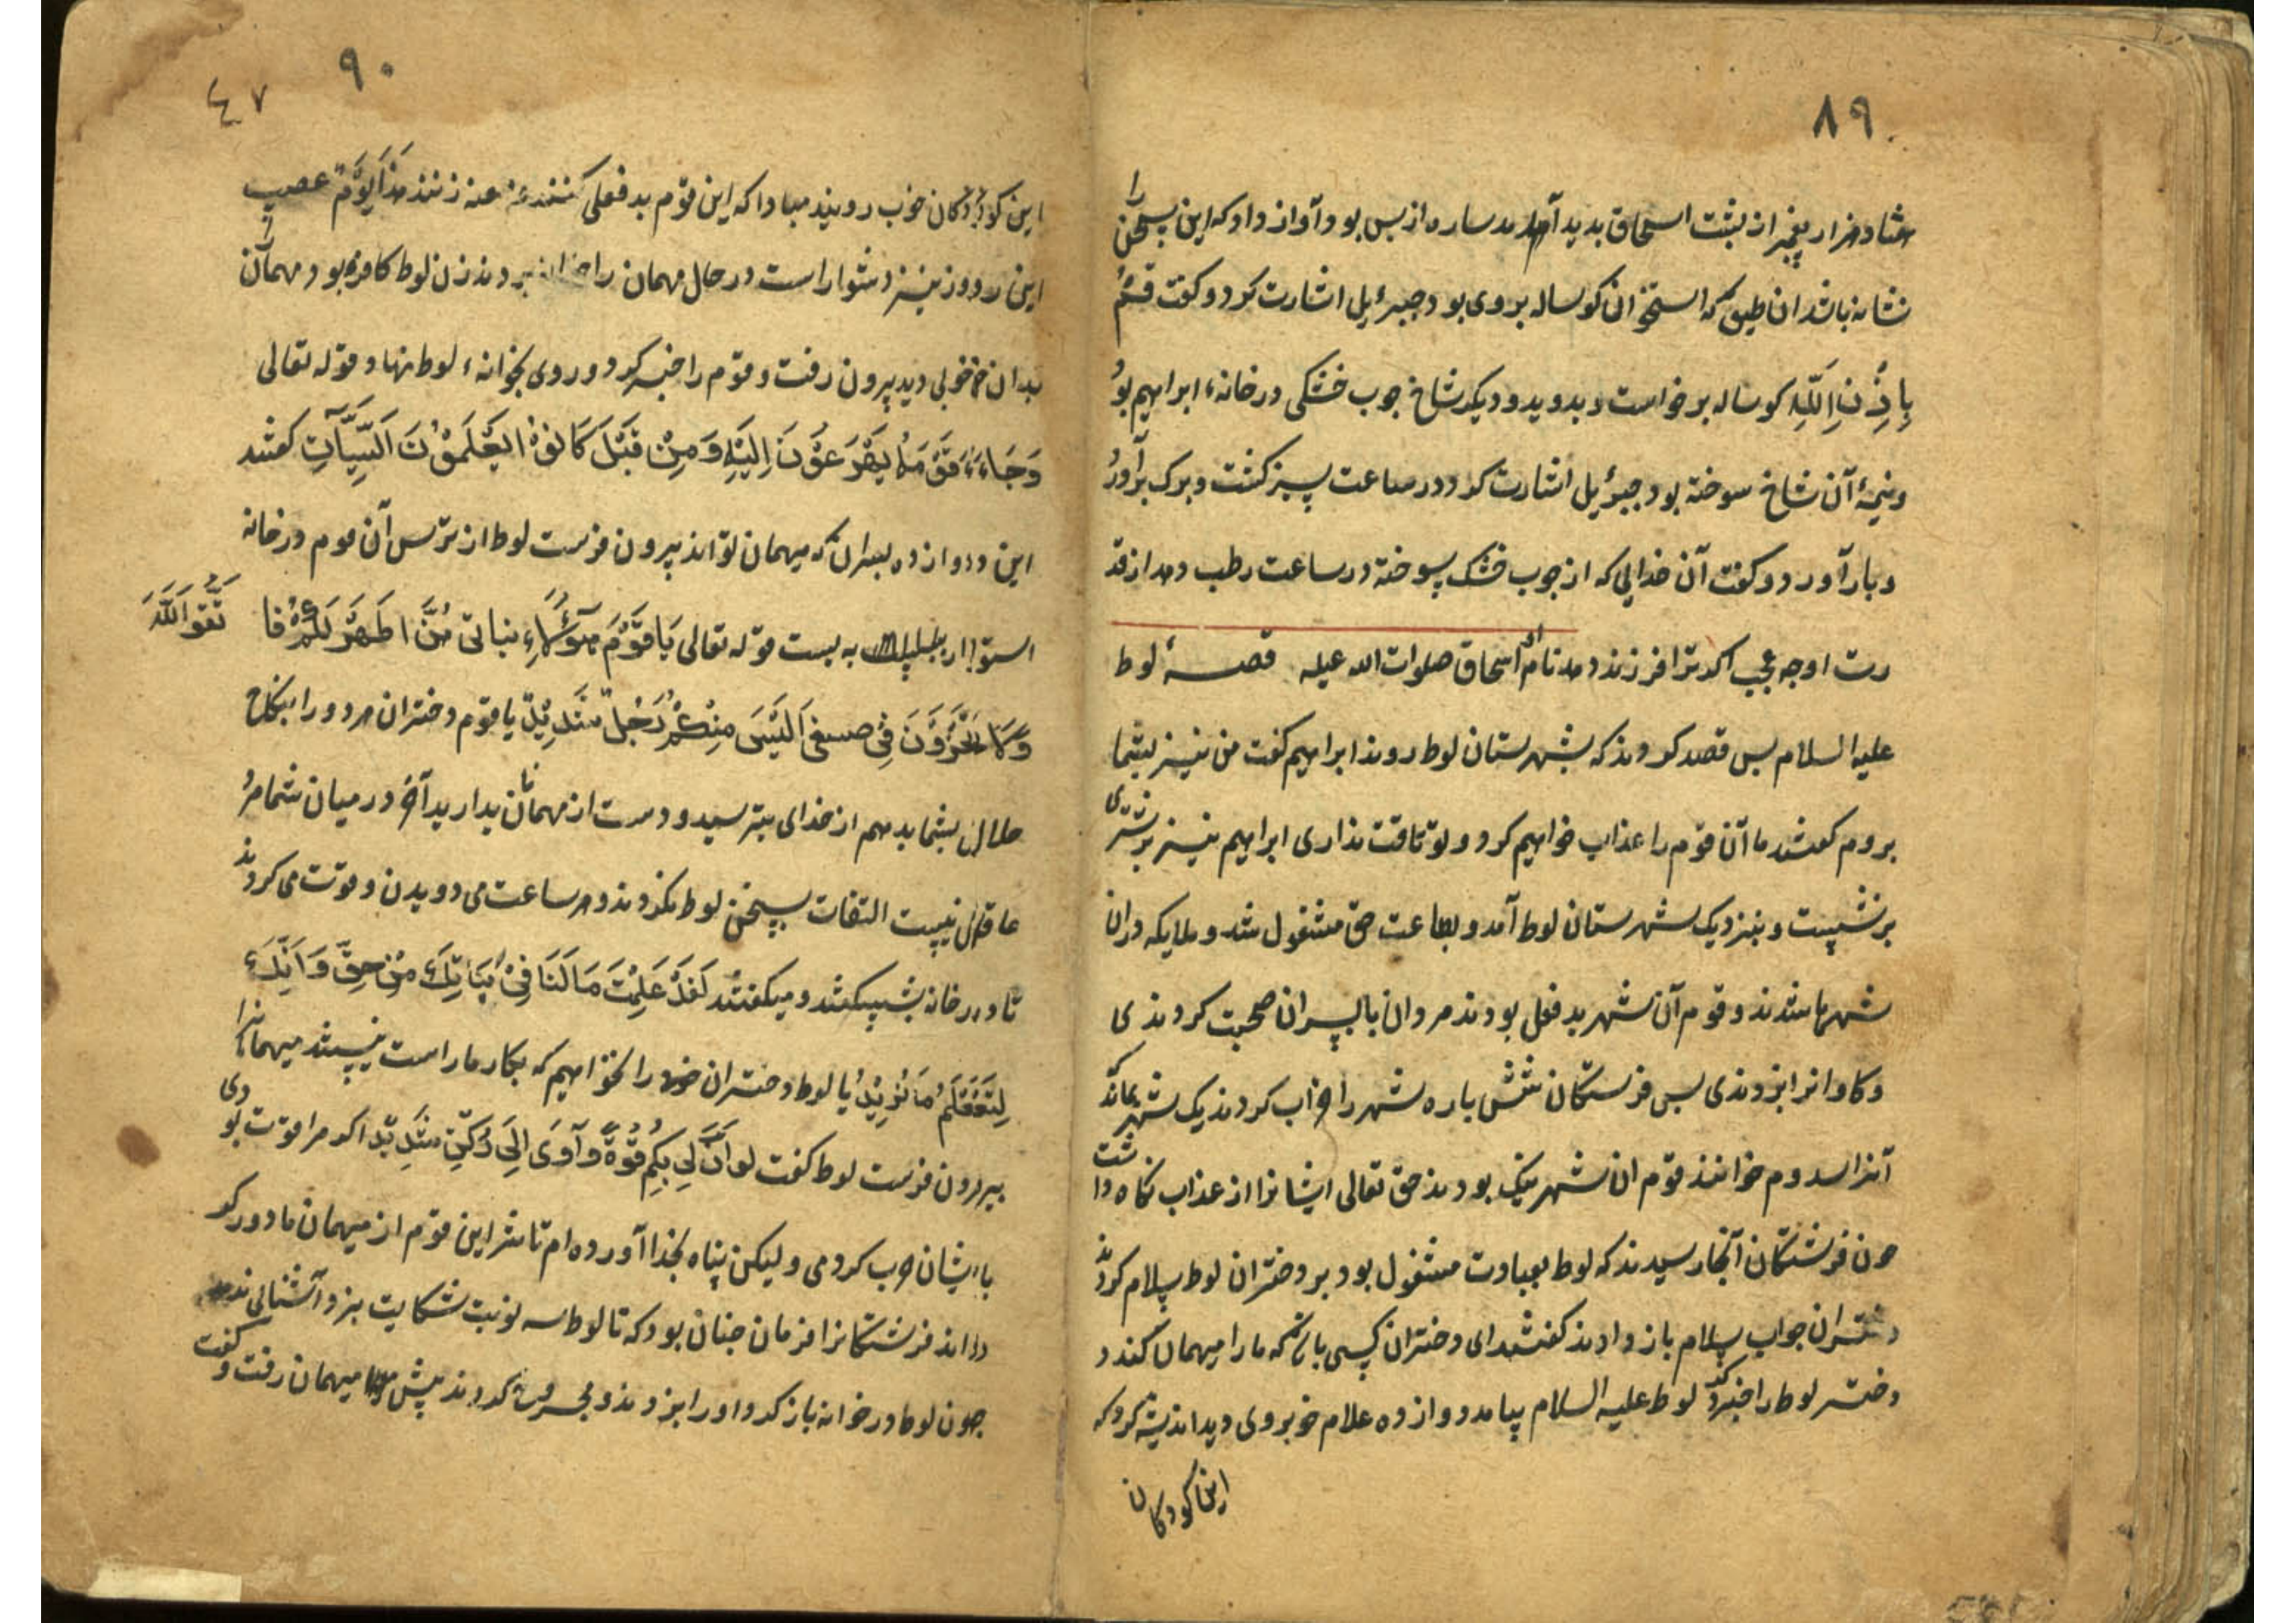 ۸۹
هشتاد هزار پیغمبر از پشت اسحاق بدید آمد ساره از پس بود آواز داد که این سخن را
نشانه باشد ان طبق که استخوان کوساله بروی بود جبرئیل اشارت کرد و کفت قُمْ
بِاِذْنِ اللّهِ کوساله برخواست و بدوید و دیکر شاخ چوب خشکی در خانهء ابراهیم بود
و نیمهٔ آن شاخ سوخته بود جبرئیل اشارت کرد در ساعت سبز کشت و برک برآورد
و بار آورد و کفت آن خدایی که از چوب خشک سوخته در ساعت رطب دهد از قد
رت او چه عجب اکر ترا فرزند دهد نام او اسحاق صلوات الله علیه قصهٔ لوط
علیه السلام پس قصد کردند که بشهرستان لوط روند ابراهیم کفت من نیز بشما
بروم کفتند ما آن قوم را عذاب خواهیم کرد و تو تاقت نداری ابراهیم نیز بر
برنشست و بنزدیک شهرستان لوط آمد و بطاعت حق مشغول شد و ملایکه دران
شهرها شدند و قوم آن شهر بد فعل بودند مردان با پسران صحبت کردندی
پس فرستکان شش باره شهر را خراب کردند یک شهر بماند که
آنرا سدوم خوانند قوم ان شهر نیک بودند حق تعالی ایشانرا از عذاب نکاه داشت
چون فرشتکان آنجا رسیدند که لوط بعبادت مشغول بود بر دختران لوط سلام کردند
دختران جواب سلام باز دادند کفتند ای دختران کسی باشد که ما را میهمان کند
دختر لوط را خبر کرد لوط علیه السلام بیامد دوازده غلام خوبروی دید اندیشه کرد که
این کودکان
۹۰
٤۷
این کودکان خوب رویند مبادا که این قوم بد فعلی کنند هَذَا یَوْمٌ عصیب
این روز نیز دشوار است در حال مهمان را بردند زن لوط کافره بود مهمان را
بدان خوبی دید بیرون رفت و قوم را خبر کرد و روی بخوانهء لوط نهاد قوله تعالی
وَجَاءَهُ قَوْمُهُ یُهْرَعُوْنَ اِلَیْهِ وَمِنْ قَبْلُ کَانُوْا یَعْمَلُوْنَ السَّیِّآتِ کفتند
این دوازده پسران که میهمان تواند بیرون فرست لوط از ترس آن قوم در خانه
استوار به بست قوله تعالی یَا قَوْمِ هَؤُلَاءِ بناتی هُنَّ اَطْهَرُ لَکُمْ فا تَّقُو اللّهَ
وَلَا تُخْزُوْنَ فِی ضیفی اَلَیْسَ مِنْکُمْ رَجُلٌ یا قوم دختران مرد ورا بنکاح
حلال بشما بدهم از خدای بترسید و دست از مهمانان بدارید آخر در میان شما مرد
عاقلی نیست التفات بسخن لوط نکردند و هر ساعت می دویدن و قوت می کردند
تا در خانه بشکستند و میکفتند لَقَدْ عَلِمْتَ مَا لَنَا فِیْ بَنَاتِکَ مِنْ حِقٍّ وَاَنَّکَ
لِتَعْلَمُ مَا نُرِیْدُ یا لوط دختران خود را نخواهیم که بکار ما راست نیستند میهمانانرا
بیرون فرست لوط کفت لو اَنَّ لِی بِکُمْ قُوَّةً وَآوَی اِلَی رُکْنٍ شَدِیْدٍ اکر مرا قوت بودی
با ایشان حرب کردمی ولیکن پناه بخدا آورده ام تا شر این قوم از میهمان ما دور کر
داند فرشتکانرا فرمان چنان بود که تا لوط سه نوبت شکایت
چون لوط در خوانه باز کرد اورا بزدند و مجروح کردند پیش میهمان رفت و کفت